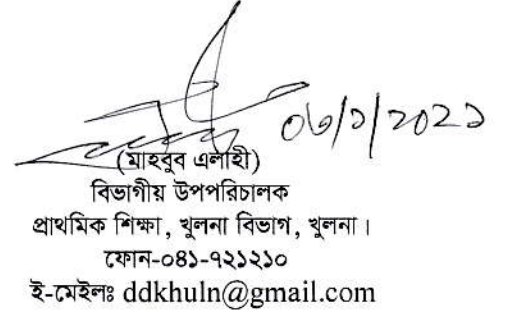 ০৬/১/২০২১
(মাহবুব এলাহী)
বিভাগীয় উপপরিচালক
প্রাথমিক শিক্ষা, খুলনা বিভাগ, খুলনা।
ফোন-০৪১-৭২১২১০
ই-মেইলঃ ddkhuln@gmail.com